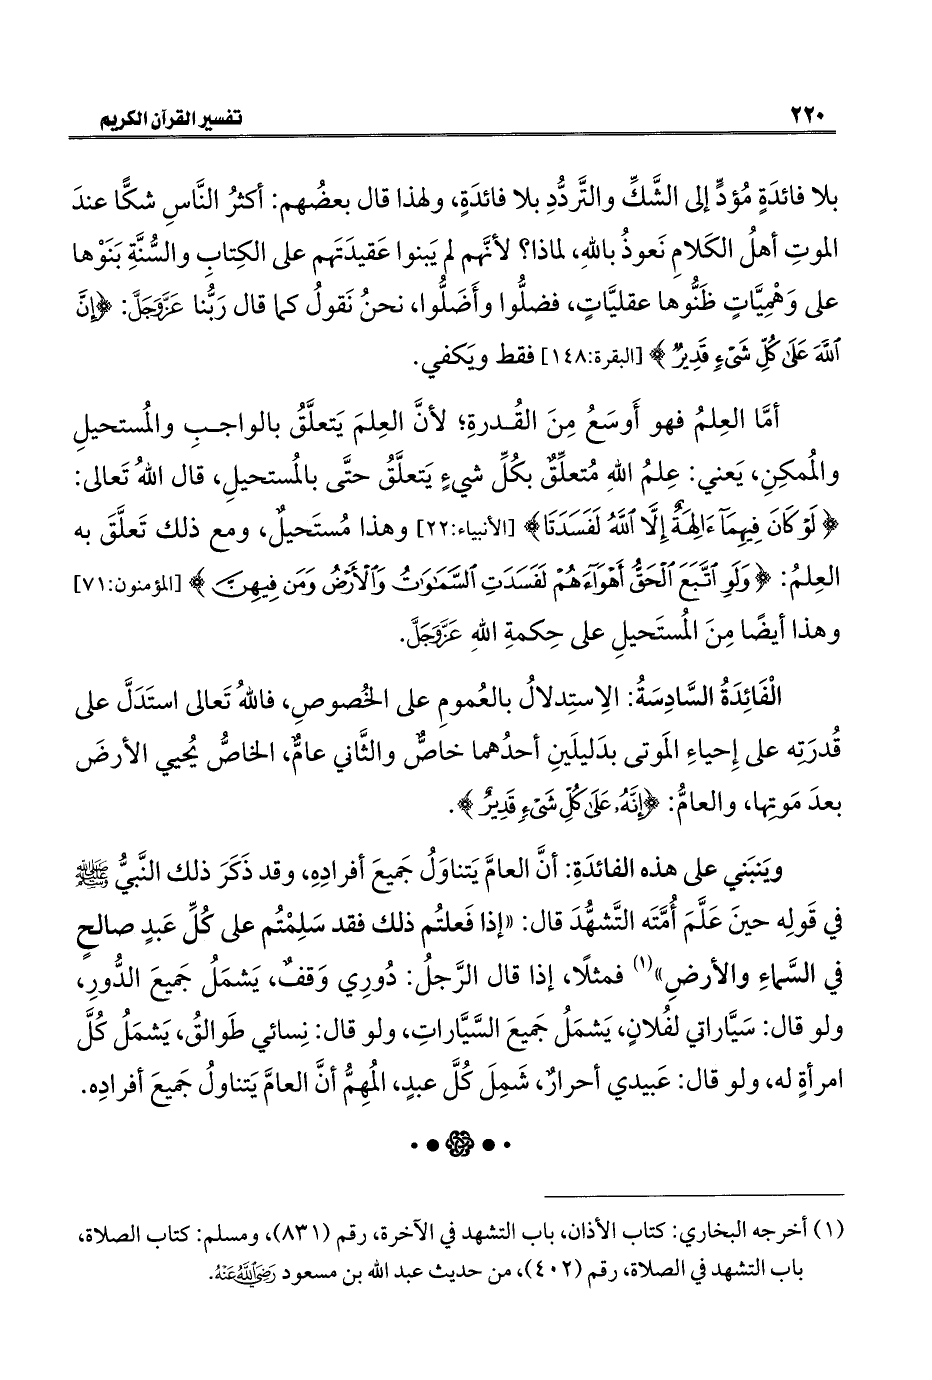 ٢٢٠
تفسير القرآن الكريم
بلا فائدَةٍ مُؤدٍّ إلى الشَّكِّ والتَّردُّدِ بلا فائدَةٍ، ولهذا قال بعضُهم: أكثرُ النَّاسِ شكًّا عندَ
الموتِ أهلُ الكَلامِ نَعوذُ باللهِ، لماذا؟ لأنَّهم لم يَبنوا عَقيدَتَهم على الكِتابِ والسُّنَّةِ بَنَوْها
على وَهْمِيَّاتٍ ظَنُّوها عقليَّاتٍ، فضلُّوا وأَضَلُّوا، نحنُ نَقولُ كما قال رَبُّنا عَزَّوَجَلَّ: ﴿إِنَّ
ٱللَّهَ عَلَىٰ كُلِّ شَىْءٍ قَدِيرٌ﴾ [البقرة:١٤٨] فقط ويَكفي.
أمَّا العِلمُ فهو أَوسَعُ مِنَ القُدرةِ؛ لأنَّ العِلمَ يَتعلَّقُ بالواجبِ والمُستحيلِ
والمُمكنِ، يَعني: عِلمُ اللهِ مُتعلِّقٌ بكُلِّ شيءٍ يَتعلَّقُ حتَّى بالمُستحيلِ، قال اللهُ تَعالى:
﴿لَوْ كَانَ فِيهِمَآ ءَالِهَةٌ إِلَّا ٱللَّهُ لَفَسَدَتَا﴾ [الأنبياء:٢٢] وهذا مُستَحيلٌ، ومع ذلك تَعلَّقَ به
العِلمُ: ﴿وَلَوِ ٱتَّبَعَ ٱلْحَقُّ أَهْوَآءَهُمْ لَفَسَدَتِ ٱلسَّمَٰوَٰتُ وَٱلْأَرْضُ وَمَن فِيهِنَّ﴾ [المؤمنون:٧١]
وهذا أيضًا مِنَ المُستَحيلِ على حِكمةِ اللهِ عَزَّوَجَلَّ.
الْفَائِدَةُ السَّادِسَةُ: الاِستِدلالُ بالعُمومِ على الخُصوصِ، فاللهُ تَعالى استَدَلَّ على
قُدرَتِه على إحياءِ المَوتى بدَليلَينِ أحدُهما خاصٌّ والثَّاني عامٌّ، الخاصُّ يُحيي الأرضَ
بعدَ مَوتِها، والعامُّ: ﴿إِنَّهُۥ عَلَىٰ كُلِّ شَىْءٍ قَدِيرٌ﴾.
ويَنبَني على هذه الفائدَةِ: أنَّ العامَّ يَتناوَلُ جَميعَ أفرادِهِ، وقد ذَكَرَ ذلك النَّبيُّ ﷺ
في قَولِه حينَ عَلَّمَ أُمَّتَه التَّشهُّدَ قال: «إذا فَعلتُم ذلك فقد سَلِمْتُم على كُلِّ عَبدٍ صالحٍ
في السَّماءِ والأرضِ»(١) فمثلًا، إذا قال الرَّجلُ: دُوري وَقفٌ، يَشمَلُ جَميعَ الدُّورِ،
ولو قال: سَيَّاراتي لفُلانٍ، يَشمَلُ جَميعَ السَّيَّاراتِ، ولو قال: نِسائي طَوالقُ، يَشمَلُ كُلَّ
امرأةٍ له، ولو قال: عَبيدي أحرارٌ، شَمِلَ كُلَّ عبدٍ، المُهمُّ أنَّ العامَّ يَتناولُ جَميعَ أفرادِه.
(١) أخرجه البخاري: كتاب الأذان، باب التشهد في الآخرة، رقم (٨٣١)، ومسلم: كتاب الصلاة،
باب التشهد في الصلاة، رقم (٤٠٢)، من حديث عبد الله بن مسعود رَضِيَ اللَّهُ عَنْهُ.